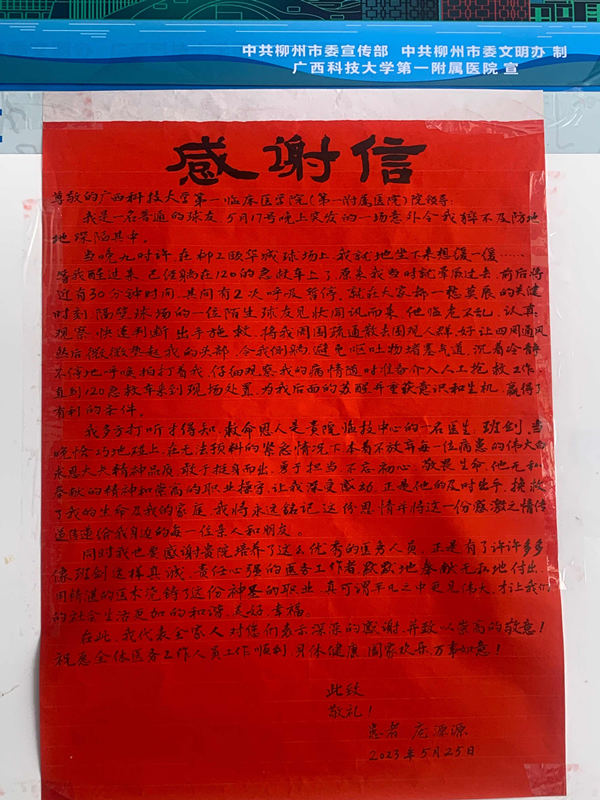 中共柳州市委宣传部 中共柳州市委文明办 制
广西科技大学第一附属医院 宣
感谢信
尊敬的广西科技大学第一临床医学院(第一附属医院)院领导:
我是一名普通的球友,5月17号晚上突发的一场意外令我猝不及防地
地深陷其中。
当晚九时许,在柳工颐华城球场上,我就地坐下来想缓一缓……
等我醒过来,已经躺在120的急救车上了,原来我当时就晕厥过去,前后将
近有30分钟时间,其间有2次呼吸暂停,就在大家都一愁莫展的关键
时刻,隔壁球场的一位陌生球友见状闻讯而来,他临危不乱,认真
观察,快速判断,出手施救,将我周围疏通散去围观人群,好让四周通风
然后微微垫起我的头部,令我侧躺避免呕吐物堵塞气道,沉着冷静
不停地呼唤拍打着我,仔细观察我的病情随时准备介入人工抢救工作
直到120急救车来到现场处置,为我后面的苏醒并重获意识和生机,赢得了
有利的条件。
我多方打听才得知,救命恩人是贵院临技中心的一名医生 班剑,当
晚恰巧地碰上,在无法预料的紧急情况下本着不放弃每一位病患的伟大而
永恩大长精神品质,敢于挺身而出,勇于担当,不忘初心,敬畏生命,他无私
奉献的精神和崇高的职业操守,让我深受感动,正是他的及时出手,拯救
了我的生命及我的家庭,我将永远铭记这份恩情并将这一份感激之情传
递传递给我身边的每一位亲人和朋友。
同时我也要感谢贵院培养了这么优秀的医务人员,正是有了许许多多
像班剑这样真诚、责任心强的医务工作者,默默地奉献无私地付出,
用精湛的医术铸了这份神圣的职业,真可谓平凡之中更见伟大,才让我们
的社会生活更加的和谐、美好、幸福。
在此,我代表全家人对您们表示深深的感谢,并致以崇高的敬意!
祝愿全体医务工作人员工作顺利,身体健康,阖家欢乐,万事如意!
此致
敬礼!
患者 庞源源
2023年5月25日